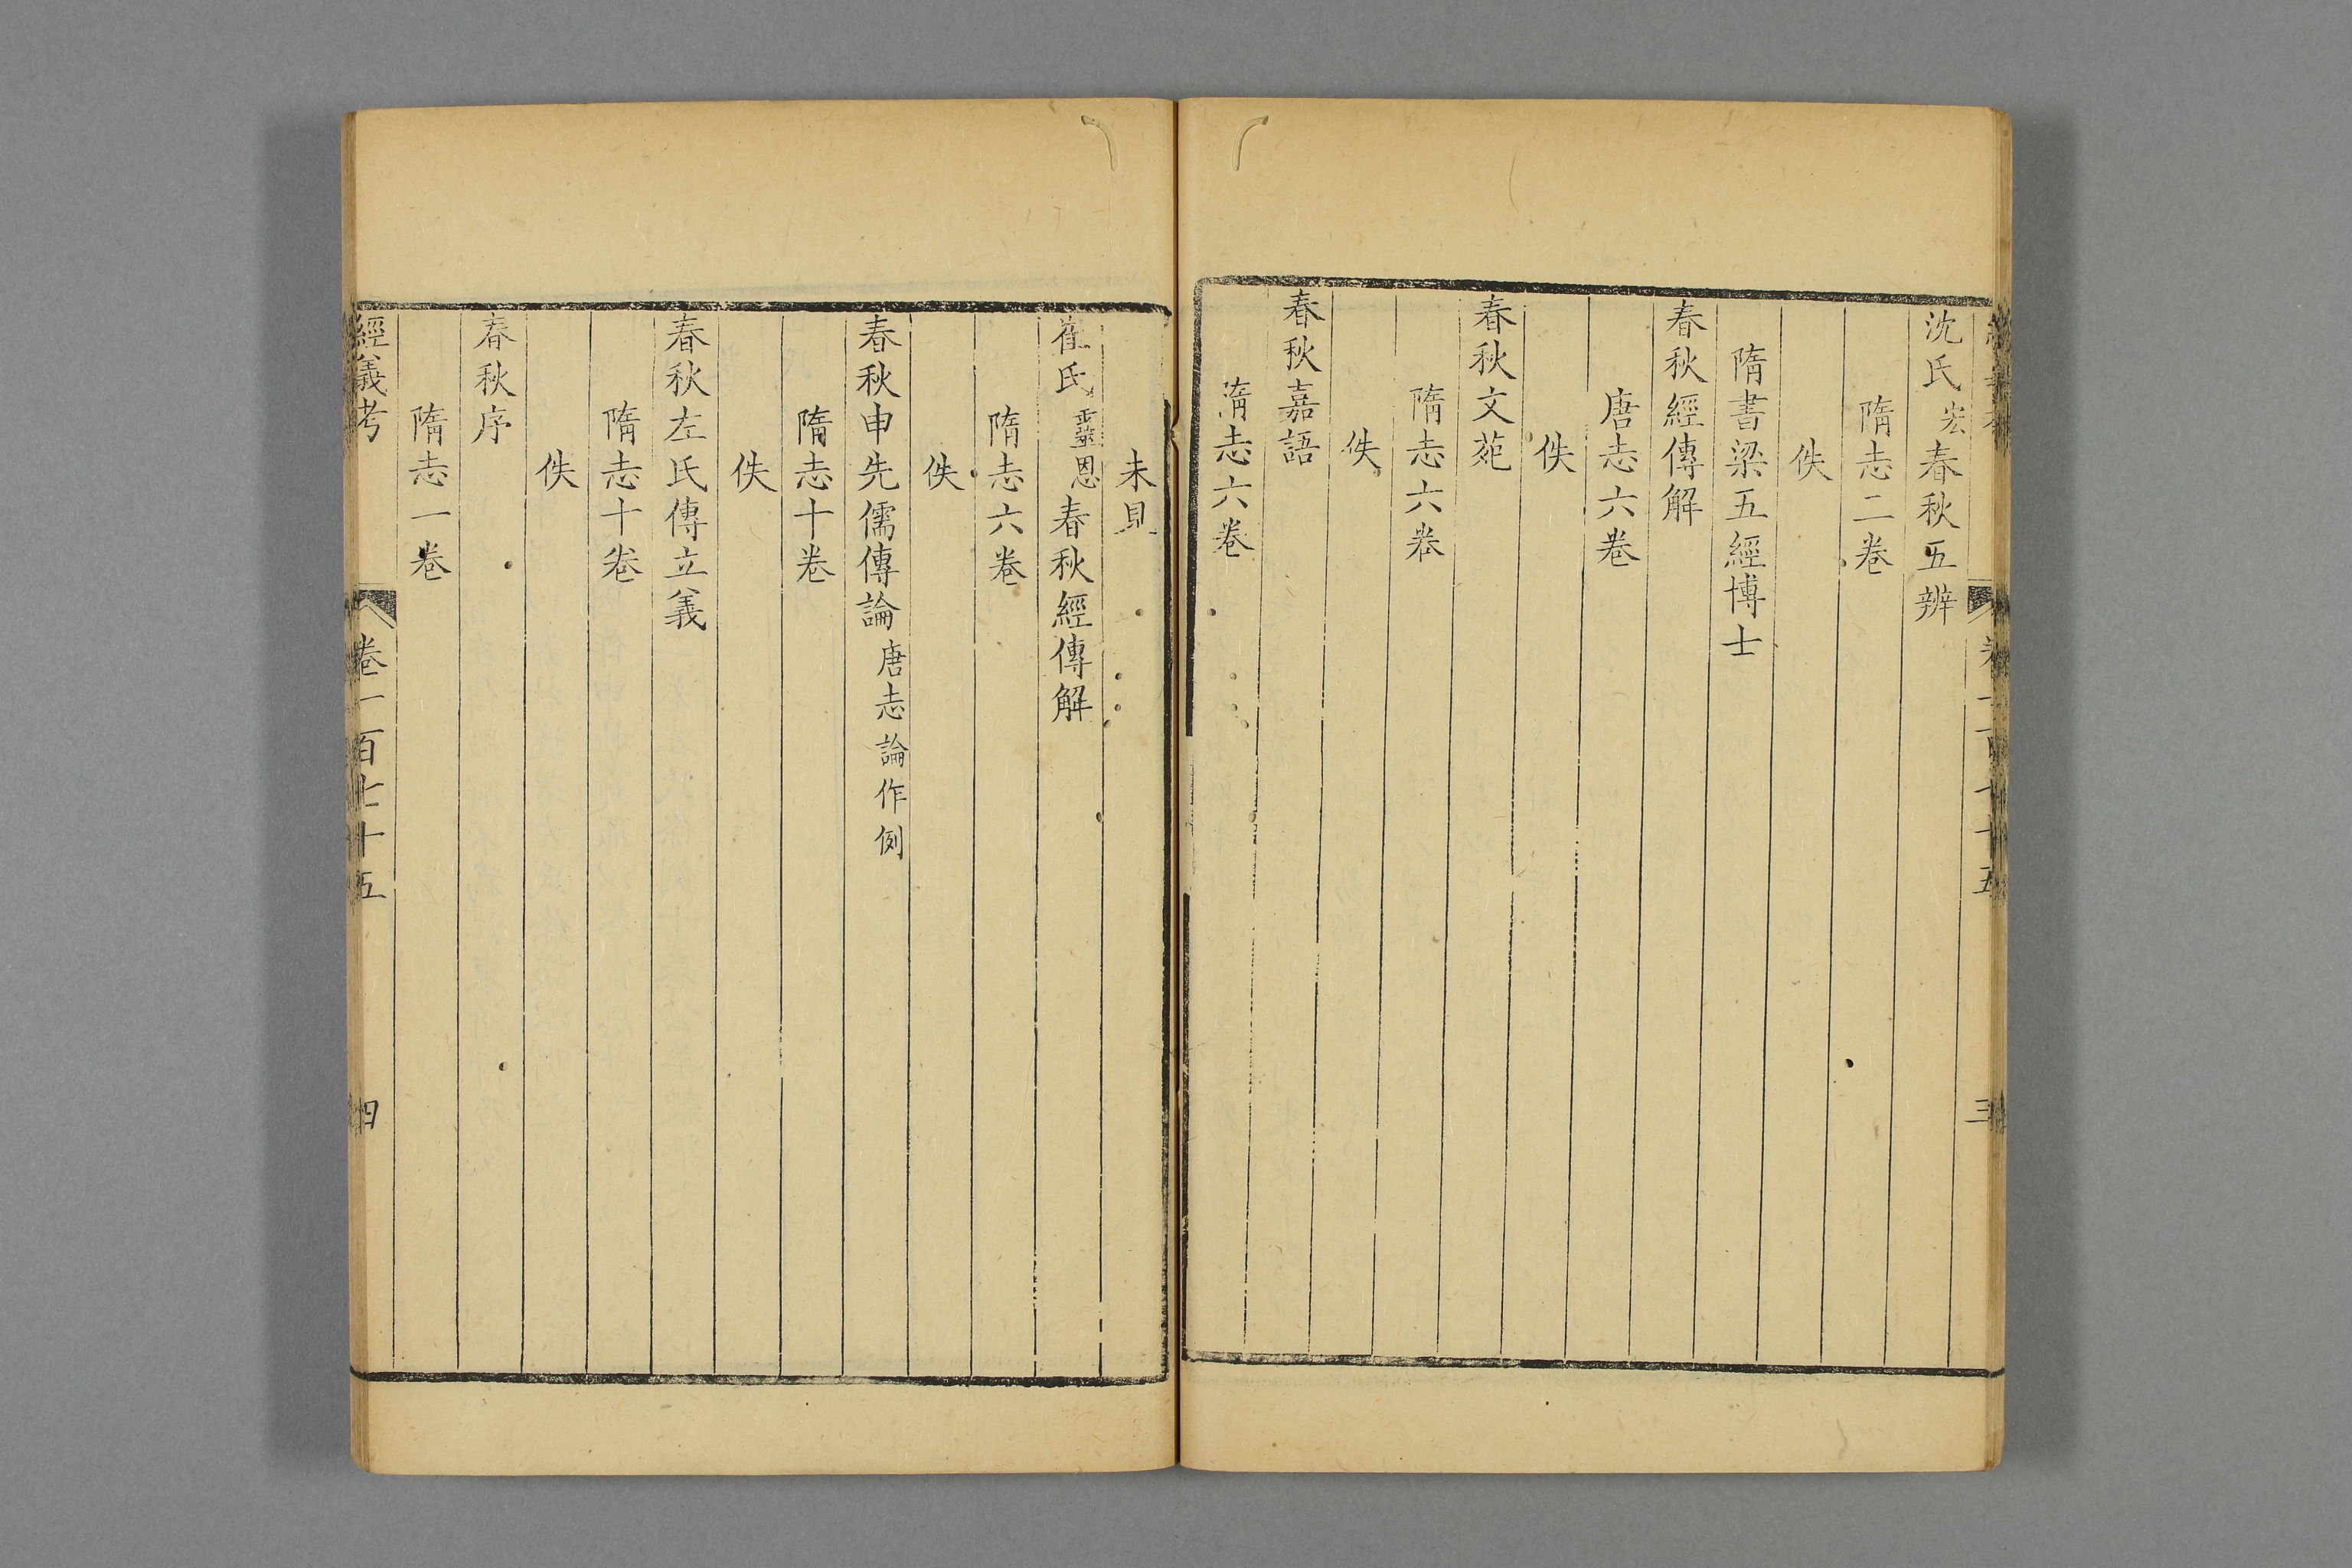 沈氏宏春秋五辨
隋志二卷
佚
隋書梁五經博士
春秋經傳解
唐志六卷
佚
春秋文苑
隋志六卷
佚
春秋嘉語
隋志六卷
未見
崔氏靈恩春秋經傳解
隋志六卷
佚
春秋申先儒傳論唐志論作例
隋志十卷
佚
春秋左氏傳立義
隋志十卷
佚
春秋序
隋志一卷
經義考 卷一百七十五 四